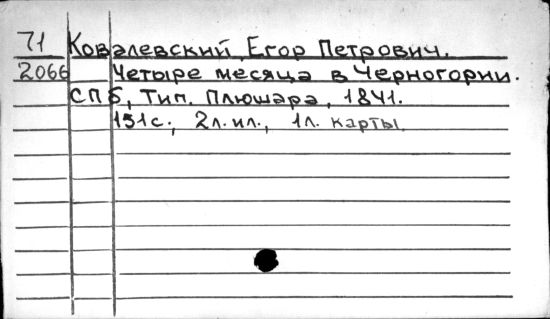 71 Ковалевский, Егор Петрович.
2066 Четыре месяца в Черногории.
СПб, Тип. Плюшара, 1841.
151с., 2л.ил., 1л. карты